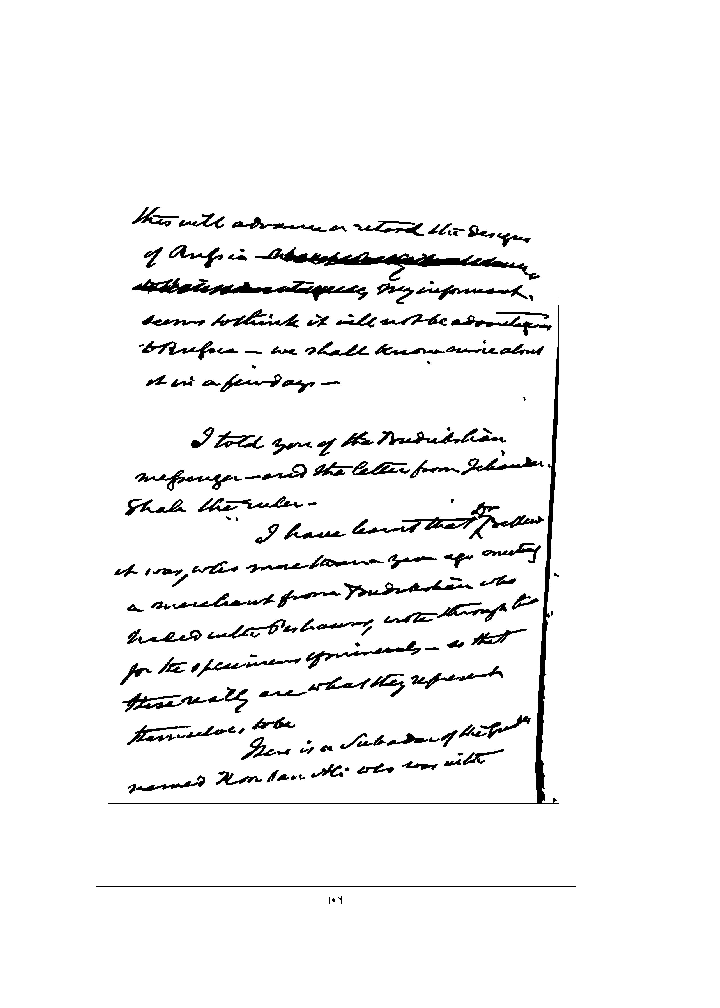 this will advance or retard the designs
of Russia
My informant
seems to think it will not be advantageous
to Russia – we shall know more about
it in a few days –
I told you of the Budukshan
messenger – and the letter from Jehander
Shah the ruler –
I have learnt that Dr
it was, who more than a year ago meeting
a merchant from Budukshan who
traded with Peshawur, wrote through him
for the specimens of minerals – so that
these really are what they represent
themselves to be
There is a Subadar of the Guides
named Ali who was with
١٠٦